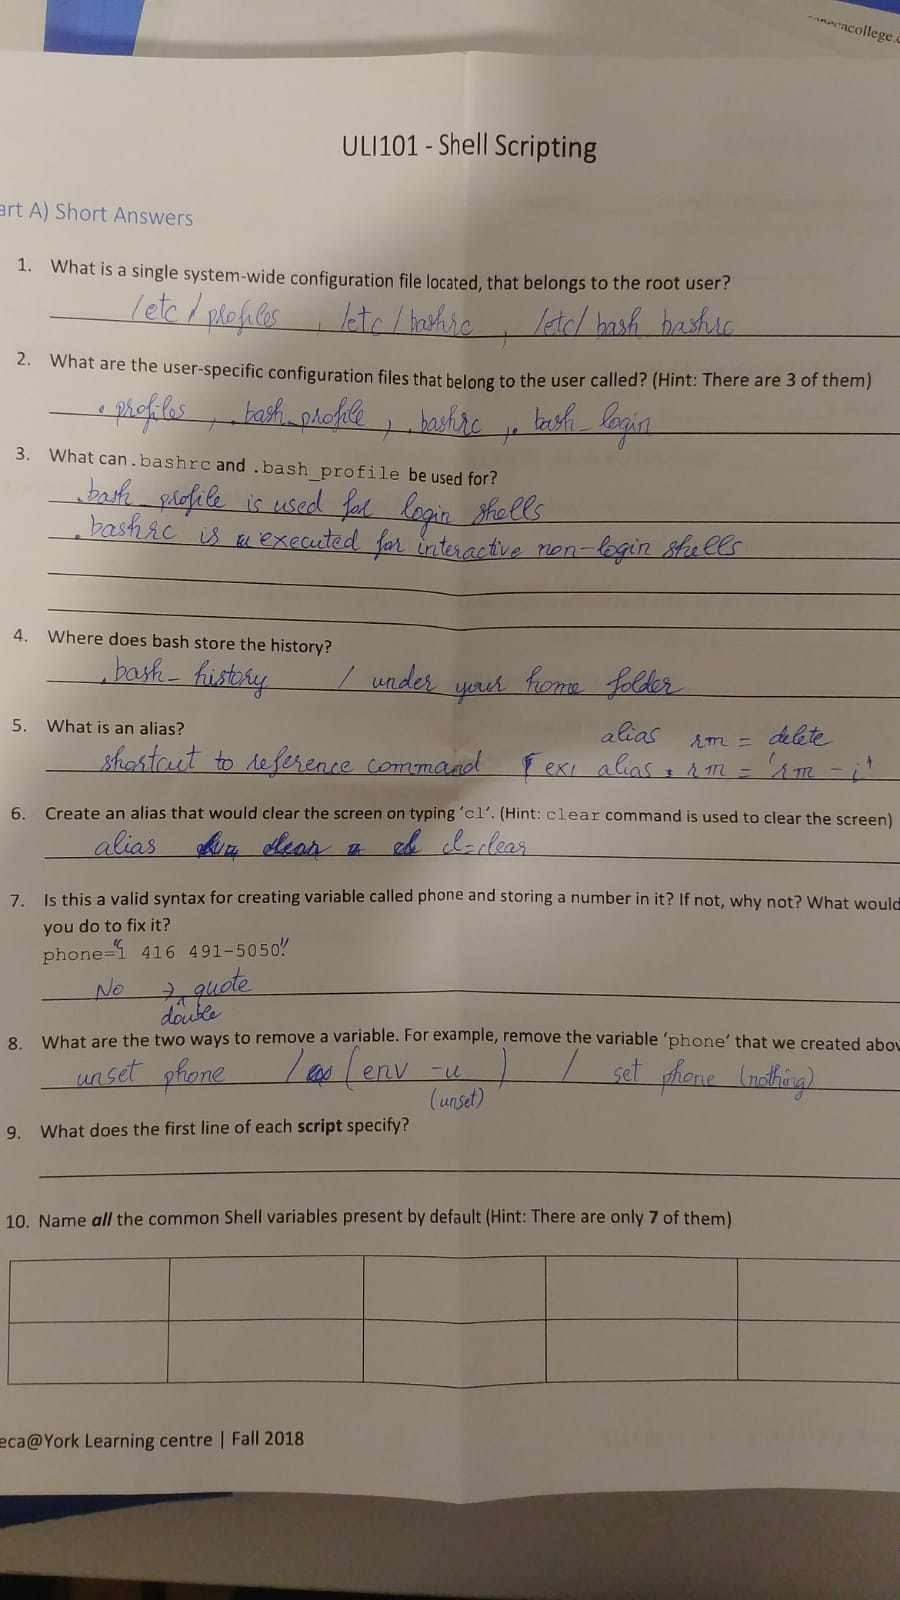 necacollege.c
ULI101 - Shell Scripting
art A) Short Answers
1. What is a single system-wide configuration file located, that belongs to the root user?
/etc/profiles , /etc/bashrc , /etc/bash bashrc
2. What are the user-specific configuration files that belong to the user called? (Hint: There are 3 of them)
.profiles , .bash_profile , .bashrc , .bash_login
3. What can .bashrc and .bash_profile be used for?
.bash_profile is used for login shells
.bashrc is executed for interactive non-login shells
4. Where does bash store the history?
.bash_history / under your home folder
5. What is an alias?
alias rm = delete
shortcut to reference command ex: alias rm = 'rm -i'
6. Create an alias that would clear the screen on typing 'cl'. (Hint: clear command is used to clear the screen)
alias clear = cl cl=clear
7. Is this a valid syntax for creating variable called phone and storing a number in it? If not, why not? What would
you do to fix it?
phone="1 416 491-5050."
No → quote
double
8. What are the two ways to remove a variable. For example, remove the variable 'phone' that we created abov
unset phone / (env -u ) / set phone (nothing)
(unset)
9. What does the first line of each script specify?
10. Name all the common Shell variables present by default (Hint: There are only 7 of them)
eca@York Learning centre | Fall 2018